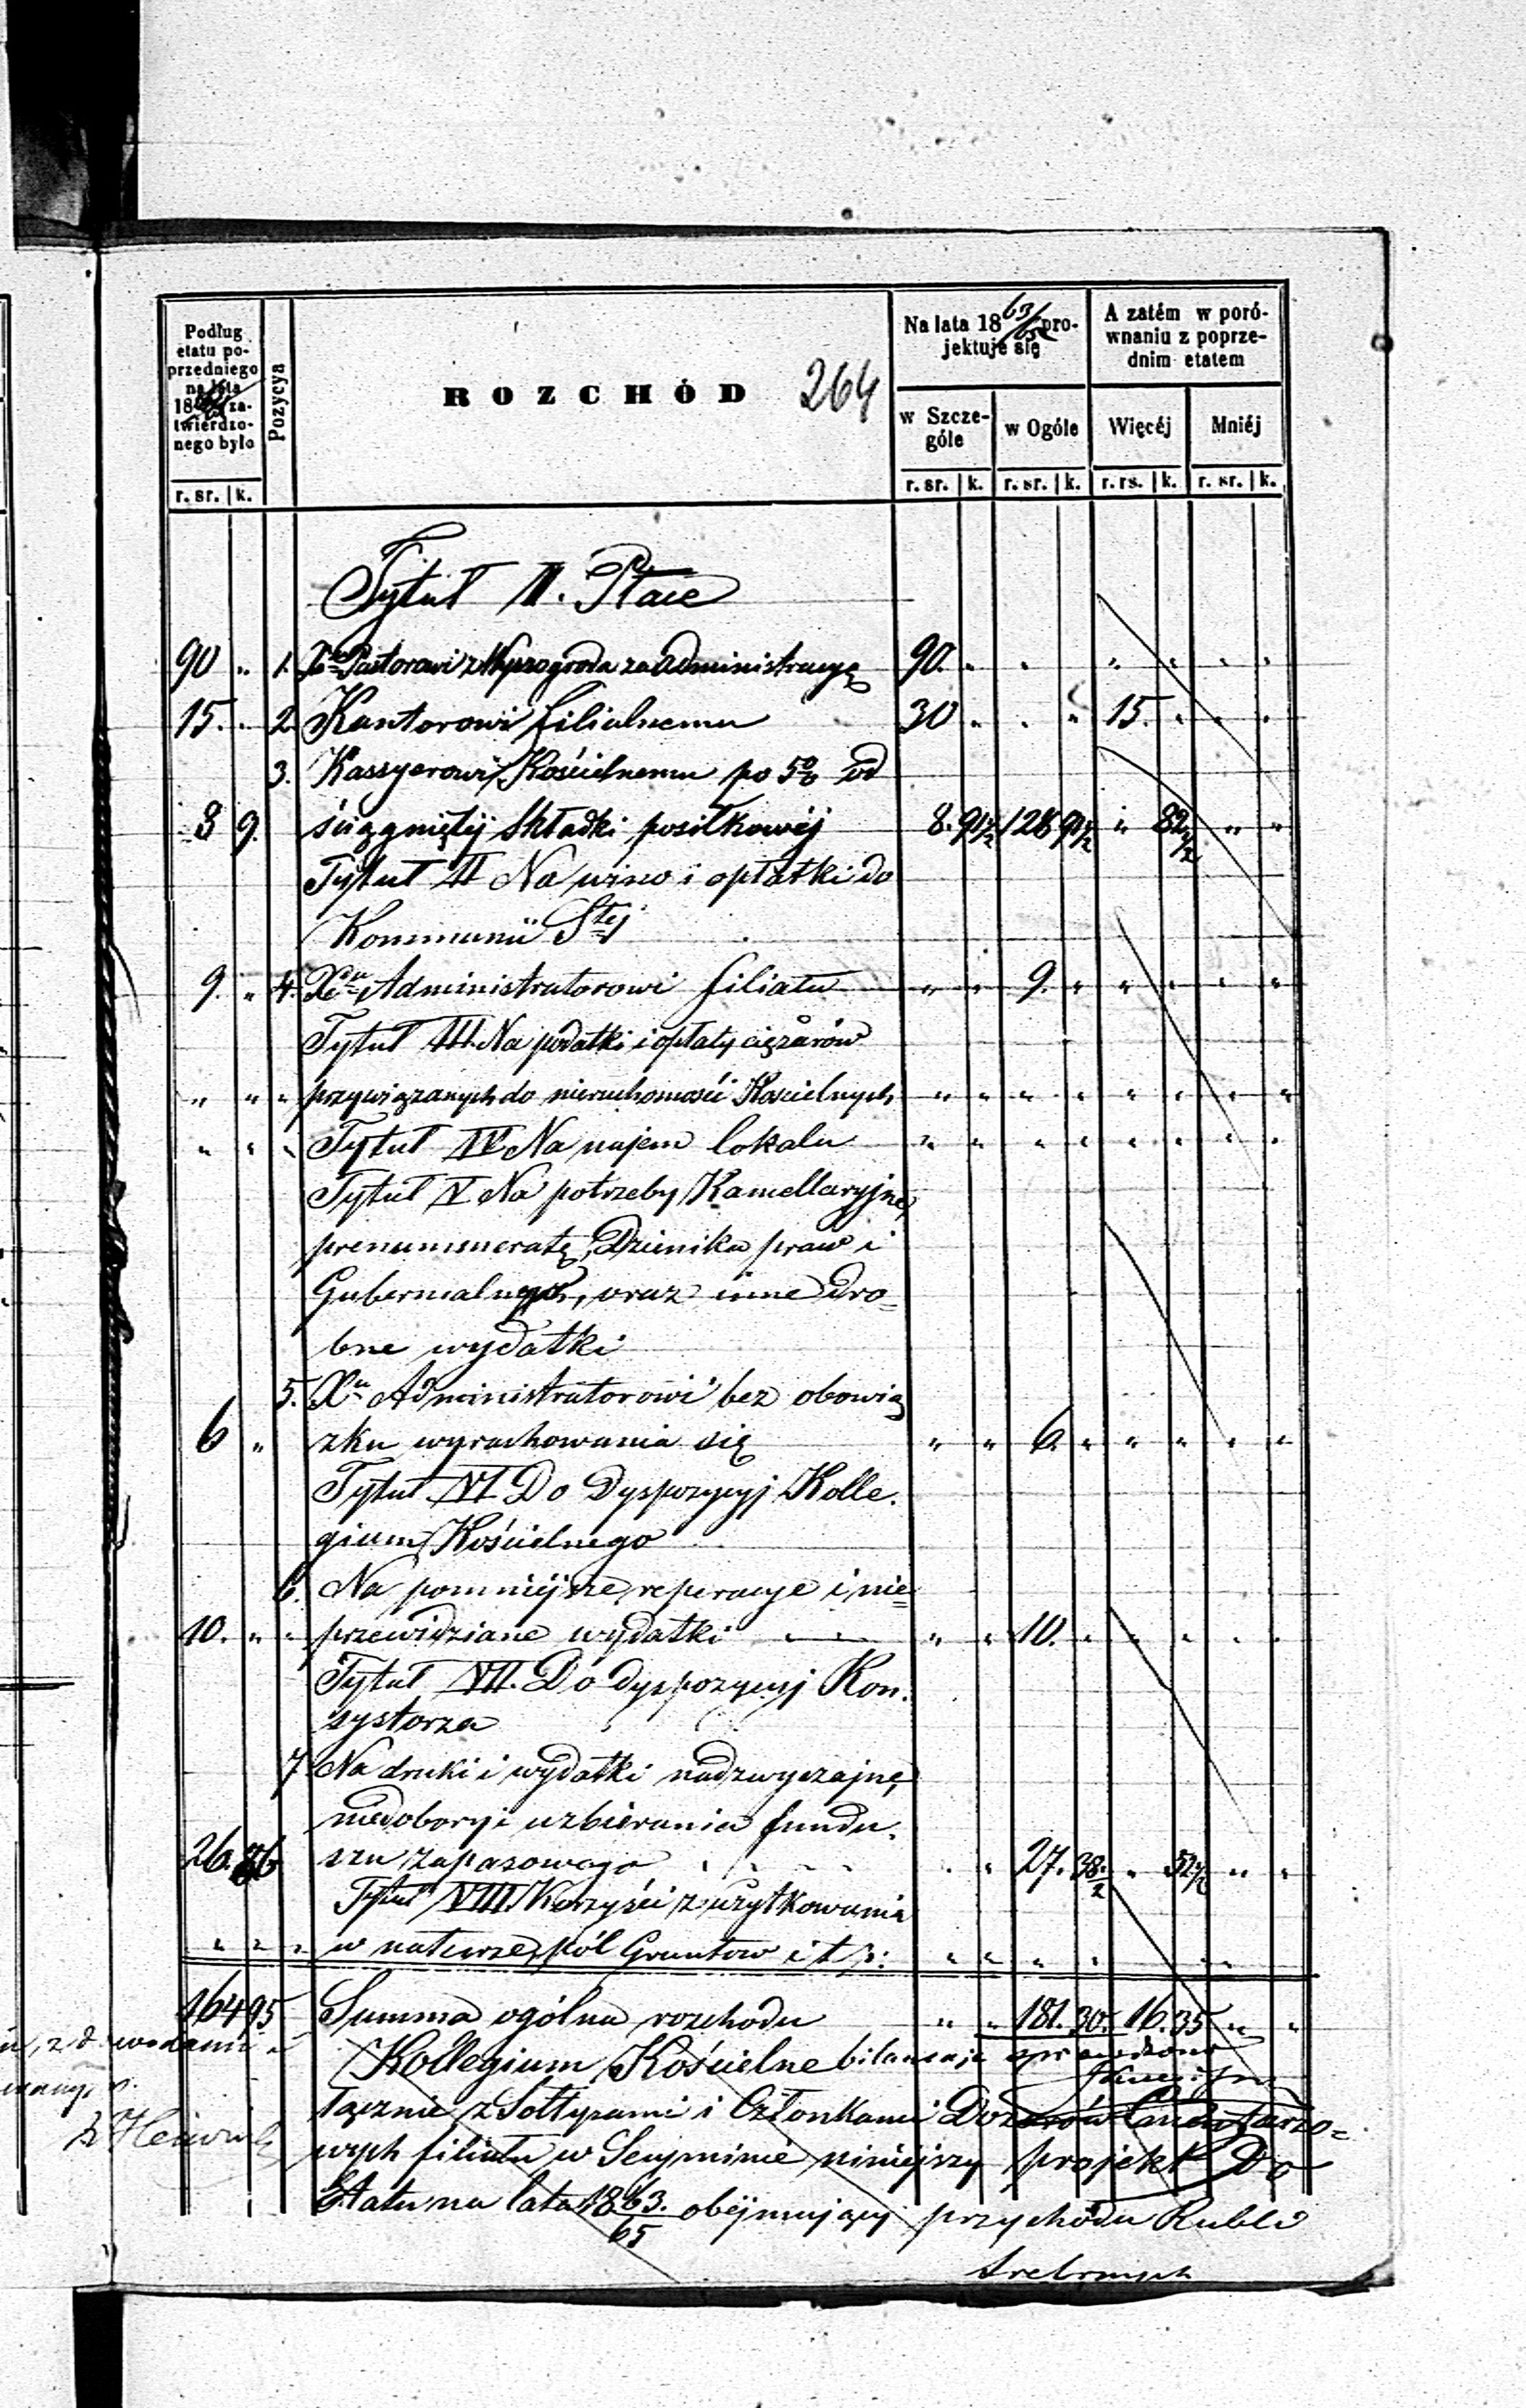 Podług
etatu po-
przedniego
na lata
18 za-
twierdzo-
nego było
Pozycya
ROZCHÓD 264
Na lata 18 63/65 pro-
jektuje się
A zatém w poró-
wnaniu z poprze-
dnim etatem
w Szcze-
góle
w Ogóle Więcéj Mniéj
r. sr. k. r. sr. k. r. sr. k. r. rs. k. r. sr. k.
Tytuł I. Płace
90 " 1. Pastorowi z Wyszogroda za administracyę 90. " " " " " "
15. " 2. Kantorowi filialnemu 30 " " " 15. " " "
3. Kassyerowi Kościelnemu po 5% od
8 9. ściągniętéj składki posiłkowéj 8. 91½ 128 91½ " 82½ " "
Tytuł II Na wino i opłatki do
Kommunii Stéj
9. " 4. Administratorowi filiału " " 9. " " " " "
Tytuł III. Na podatki i opłaty ciężarów
" " " przywiązanych do nieruchomości Kościelnych " " " " " " " "
" " " Tytuł IV Na najem lokalu " " " " " " " "
Tytuł V Na potrzeby Kancellaryjne,
prenummeratę Dzienika praw i
Gubernialnego, oraz inne dro=
bne wydatki
5. Xu Administratorowi bez obowią
6 " zku wyrachowania się " " 6. " " " " "
Tytuł VI Do Dyspozycyj Kolle.
gium Kościelnego
6. Na pomniejsze reperacye i nie=
10. " " przewidziane wydatki " " 10. " " " " "
Tytuł VII. Do dyspozycyj Kon.
systorza
7 Na druki i wydatki nadzwyczajne,
niedobory i uzbierania fundu.
26. 86 szu zapasowego " " 27. 38½ " 52½ " "
Tytuł VIII Korzyści z użytkowania
" " " w naturze pól Gruntow i t p: " " " " " "
164 95 Summa ogólna rozchodu " " 181. 30. 16. 35 " "
Kollegium Kościelne
łącznie z Sołtysami i Członkami Dozorów
wych filiału w Secyminie niniejszy projekt Do
Etatu na lata 1863/65 obéjmujący przychodu Rubli
srebrnych